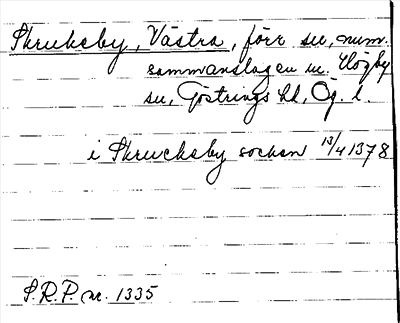 Skruksby, Västra, förr su, num.
sammanslagen m. Högby
su, Göstrings hd, Ög. l.
i Skrucksby sockan 13/4 1378
S.R.P. nr. 1335